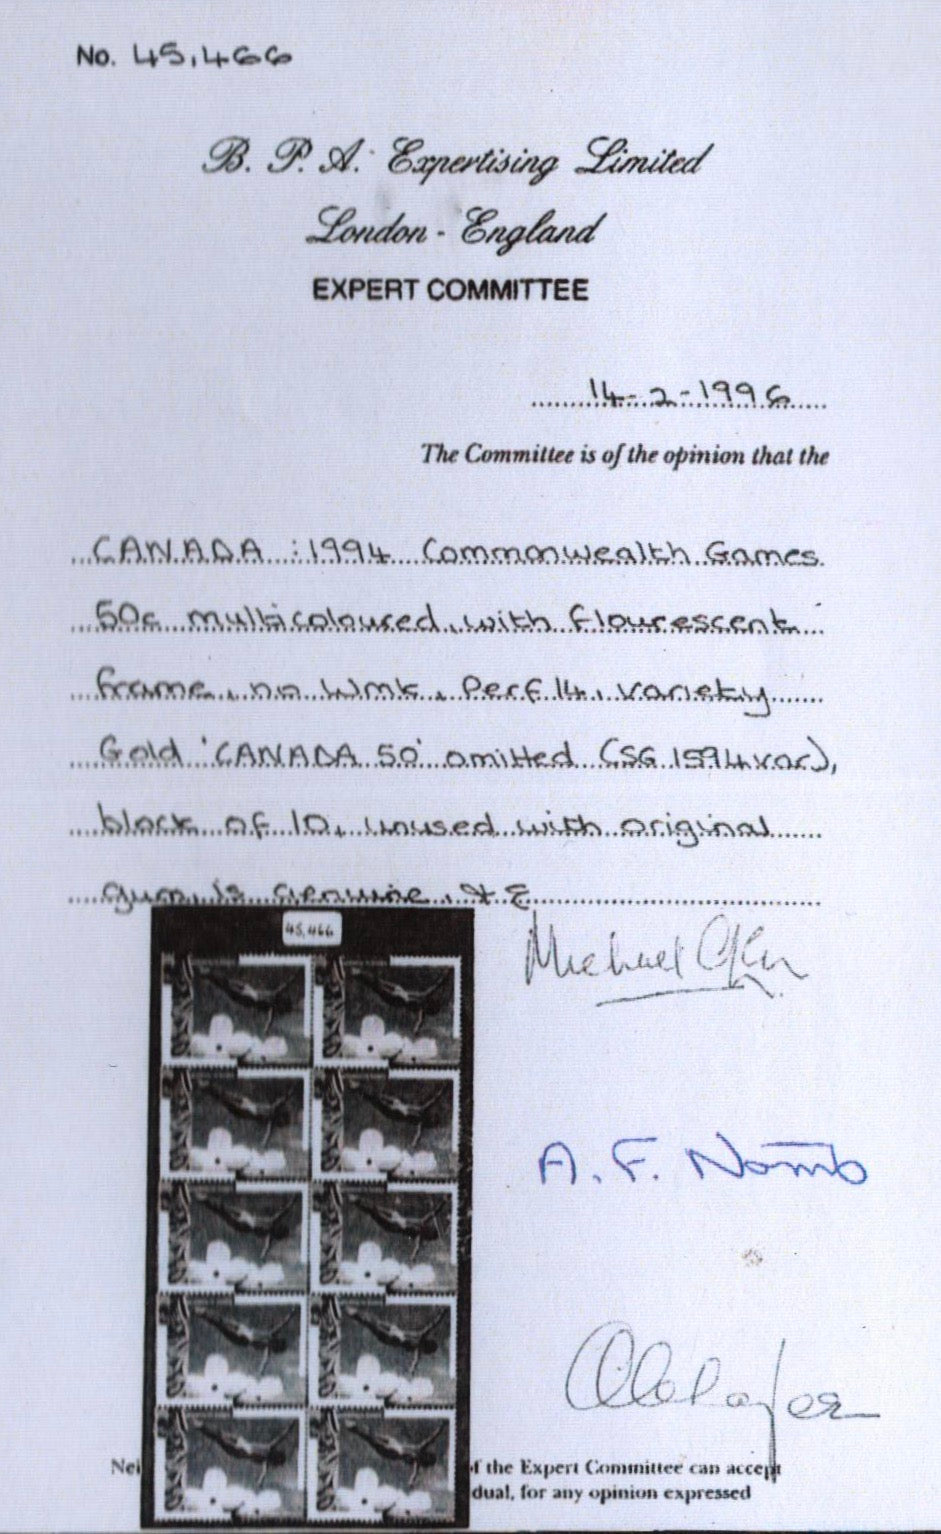 No. 45,466
B. P. A. Expertising Limited
London - England
EXPERT COMMITTEE
14-2-1996
The Committee is of the opinion that the
CANADA : 1994 Commonwealth Games
50c multicoloured, with flourescent
frame, no Wmk, Perf 14, variety
Gold 'CANADA 50' omitted (SG 1594var),
block of 10, unused with original
gum, is genuine.
45,466
Michael
A. F.
Nei
f the Expert Committee can accept
dual, for any opinion expressed